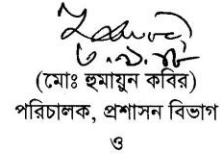 (মোঃ হুমায়ুন কবির)
পরিচালক, প্রশাসন বিভাগ
ও